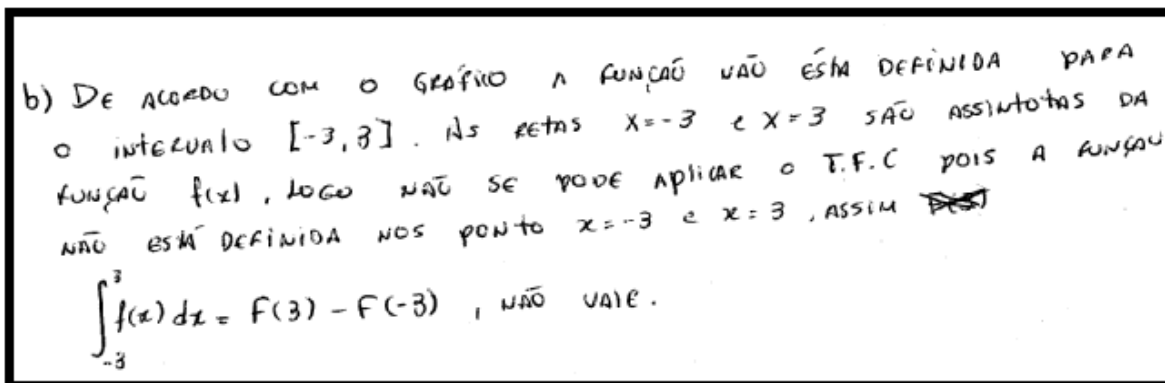 b) DE ACORDO COM O GRÁFICO A FUNÇAÕ NÃO ESTÁ DEFINIDA PARA
O INTERVALO [-3,3]. AS RETAS X=-3 e X=3 SÃO ASSINTOTAS DA
FUNÇAÕ f(x), LOGO NAÕ SE PODE APLICAR O T.F.C POIS A FUNÇAÕ
NÃO ESTÁ DEFINIDA NOS PONTO x=-3 e x=3, ASSIM
∫₋₃³ f(x) dx = F(3) - F(-3), NÃO VALE.